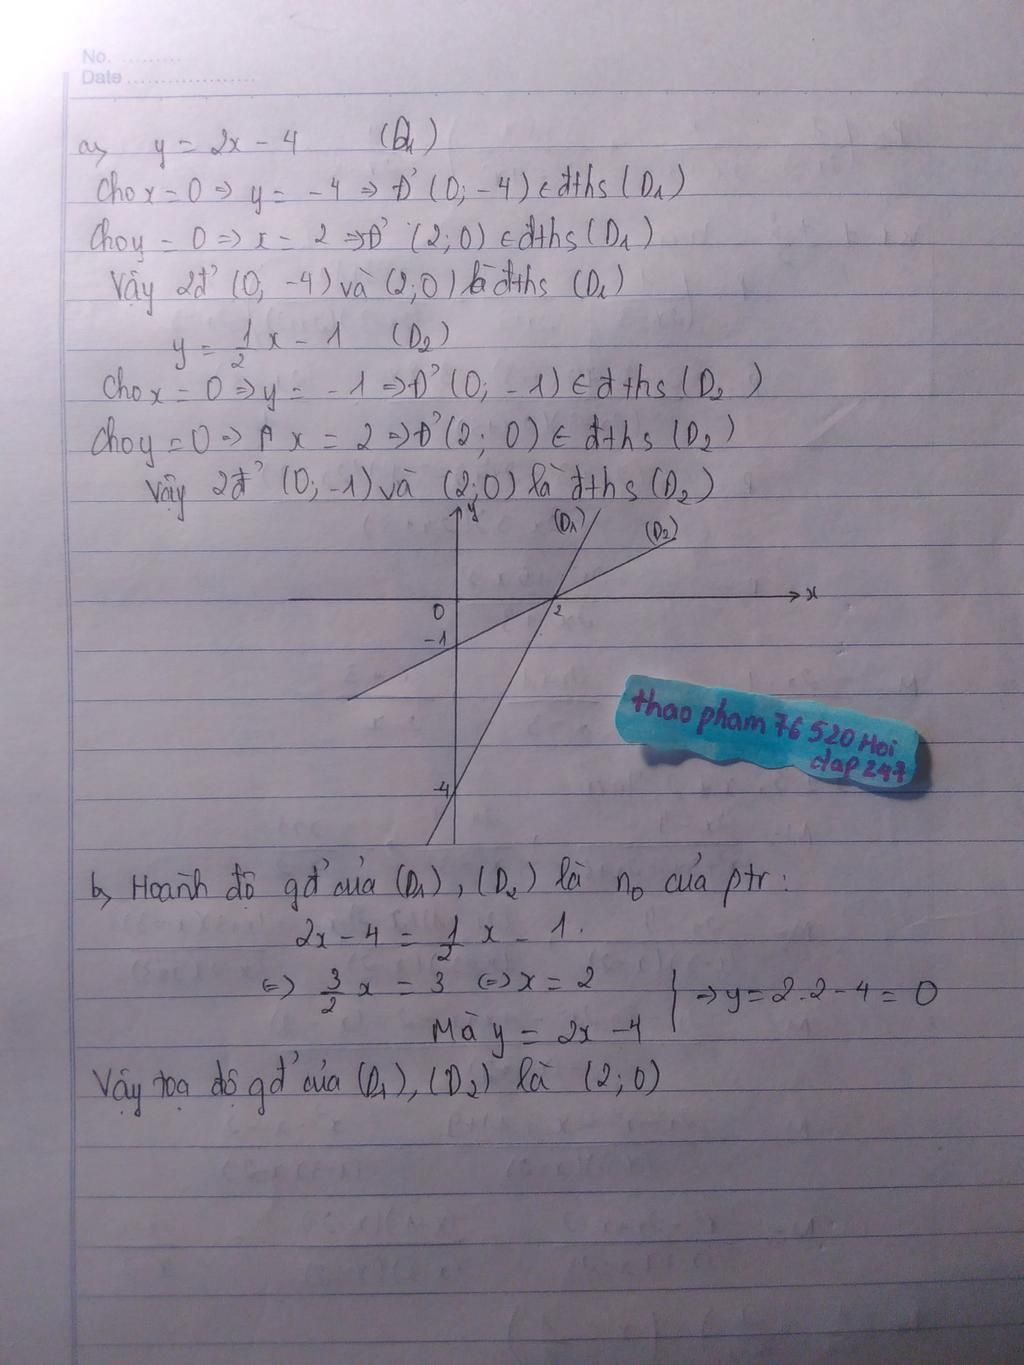 No. .........
Date ...................
a, y = 2x - 4 (D₁)
Cho x = 0 => y = -4 => Đ' (0; -4) ∈ đths (D₁)
Cho y = 0 => x = 2 => Đ' (2; 0) ∈ đths (D₁)
Vậy 2đ' (0; -4) và (2; 0) là đths (D₁)
y = 1/2 x - 1 (D₂)
Cho x = 0 => y = -1 => Đ' (0; -1) ∈ đths (D₂)
Cho y = 0 => x = 2 => Đ' (2; 0) ∈ đths (D₂)
Vậy 2đ' (0; -1) và (2; 0) là đths (D₂)
y (D₁) (D₂)
0 2 x
-1
thao pham 76 520 Hoi
dap 247
-4
b, Hoành độ gđ' của (D₁), (D₂) là n₀ của ptr:
2x - 4 = 1/2 x - 1.
<=> 3/2 x = 3 <=> x = 2
Mà y = 2x - 4 => y = 2.2 - 4 = 0
Vậy toạ độ gđ' của (D₁), (D₂) là (2; 0)